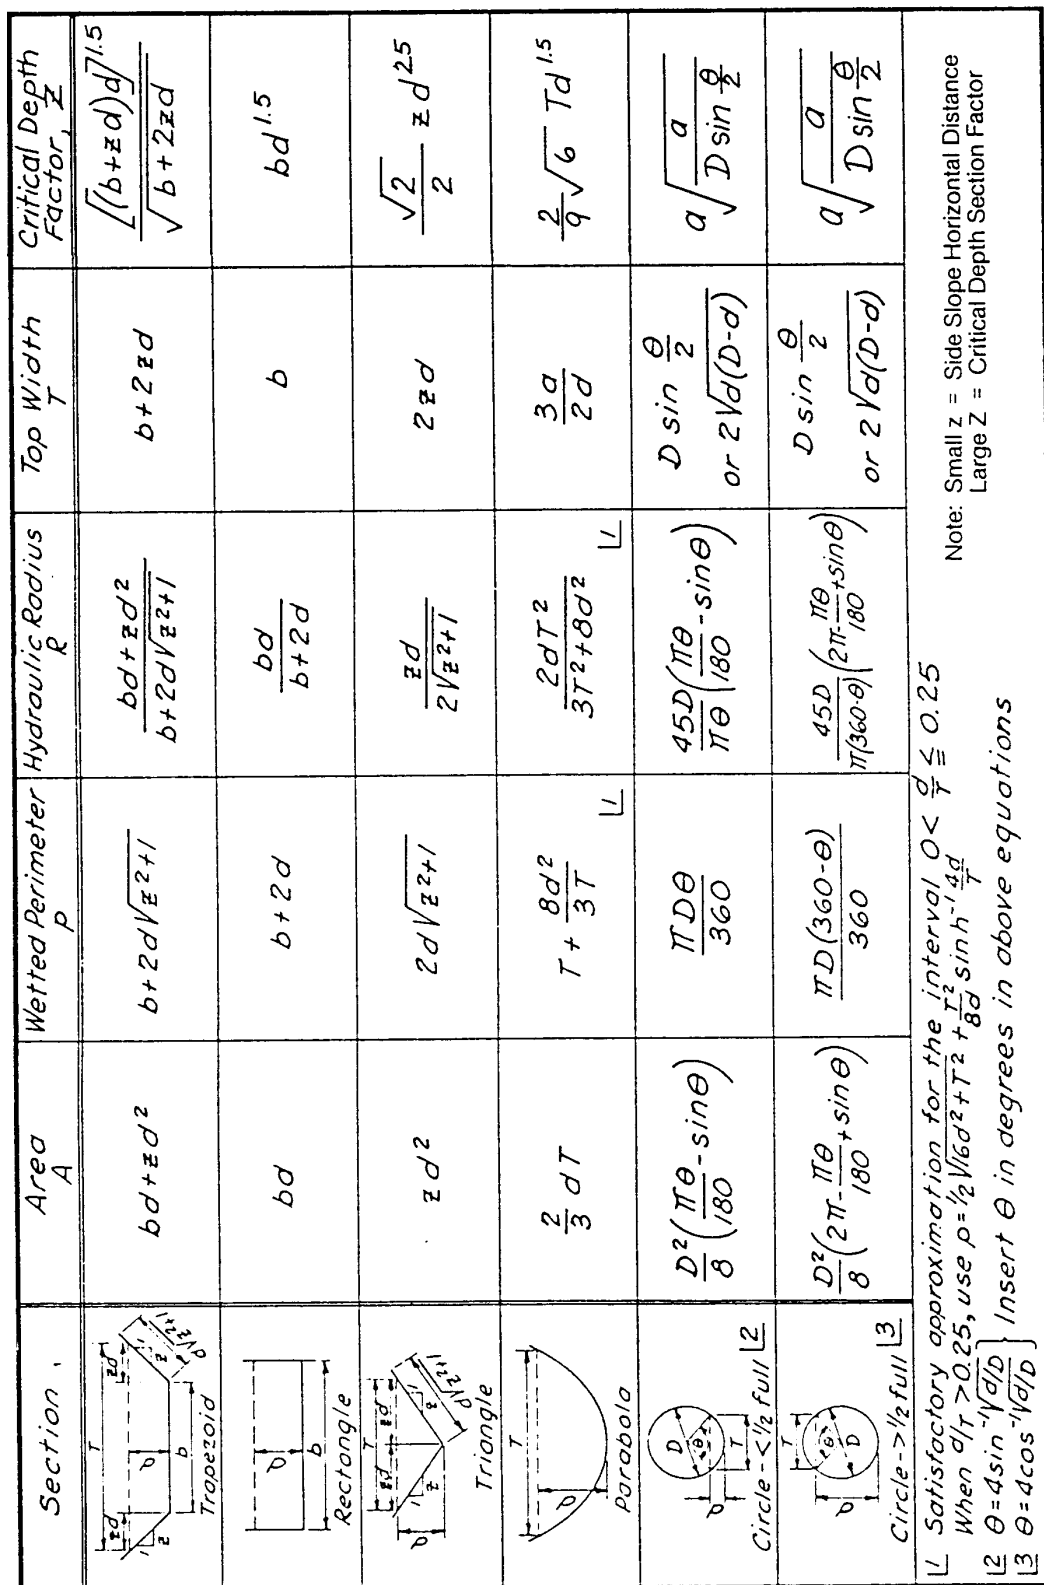 Section
Area
A
Wetted Perimeter
P
Hydraulic Radius
R
Top Width
T
Critical Depth
Factor, Z
T
zd
zd
1
z
d
b
1
z
d√z²+1
Trapezoid
bd+zd²
b+2d√z²+1
bd+zd² / b+2d√z²+1
b+2zd
[(b+zd)d]^1.5 / √b+2zd
d
b
Rectangle
bd
b+2d
bd / b+2d
b
bd^1.5
T
zd
zd
1
z
d
1
z
d√z²+1
Triangle
zd²
2d√z²+1
zd / 2√z²+1
2zd
√2 / 2 zd^2.5
T
d
Parabola
2/3 dT
T + 8d²/3T |1
2dT² / 3T²+8d² |1
3a / 2d
2/9 √6 Td^1.5
D
θ
d
T
Circle-<1/2 full |2
D²/8 (πθ/180 - sinθ)
πDθ / 360
45D/πθ (πθ/180 - sinθ)
D sin θ/2
or 2√d(D-d)
a√(a / D sin θ/2)
T
θ
D
d
Circle->1/2 full |3
D²/8 (2π - πθ/180 + sinθ)
πD(360-θ) / 360
45D/π(360-θ) (2π - πθ/180 + sinθ)
D sin θ/2
or 2√d(D-d)
a√(a / D sin θ/2)
|1 Satisfactory approximation for the interval 0< d/T ≦ 0.25
When d/T >0.25, use p=1/2√16d²+T² + T²/8d sinh⁻¹ 4d/T
|2 θ=4sin⁻¹√d/D
|3 θ=4cos⁻¹√d/D
} Insert θ in degrees in above equations
Note: Small z = Side Slope Horizontal Distance
Large Z = Critical Depth Section Factor